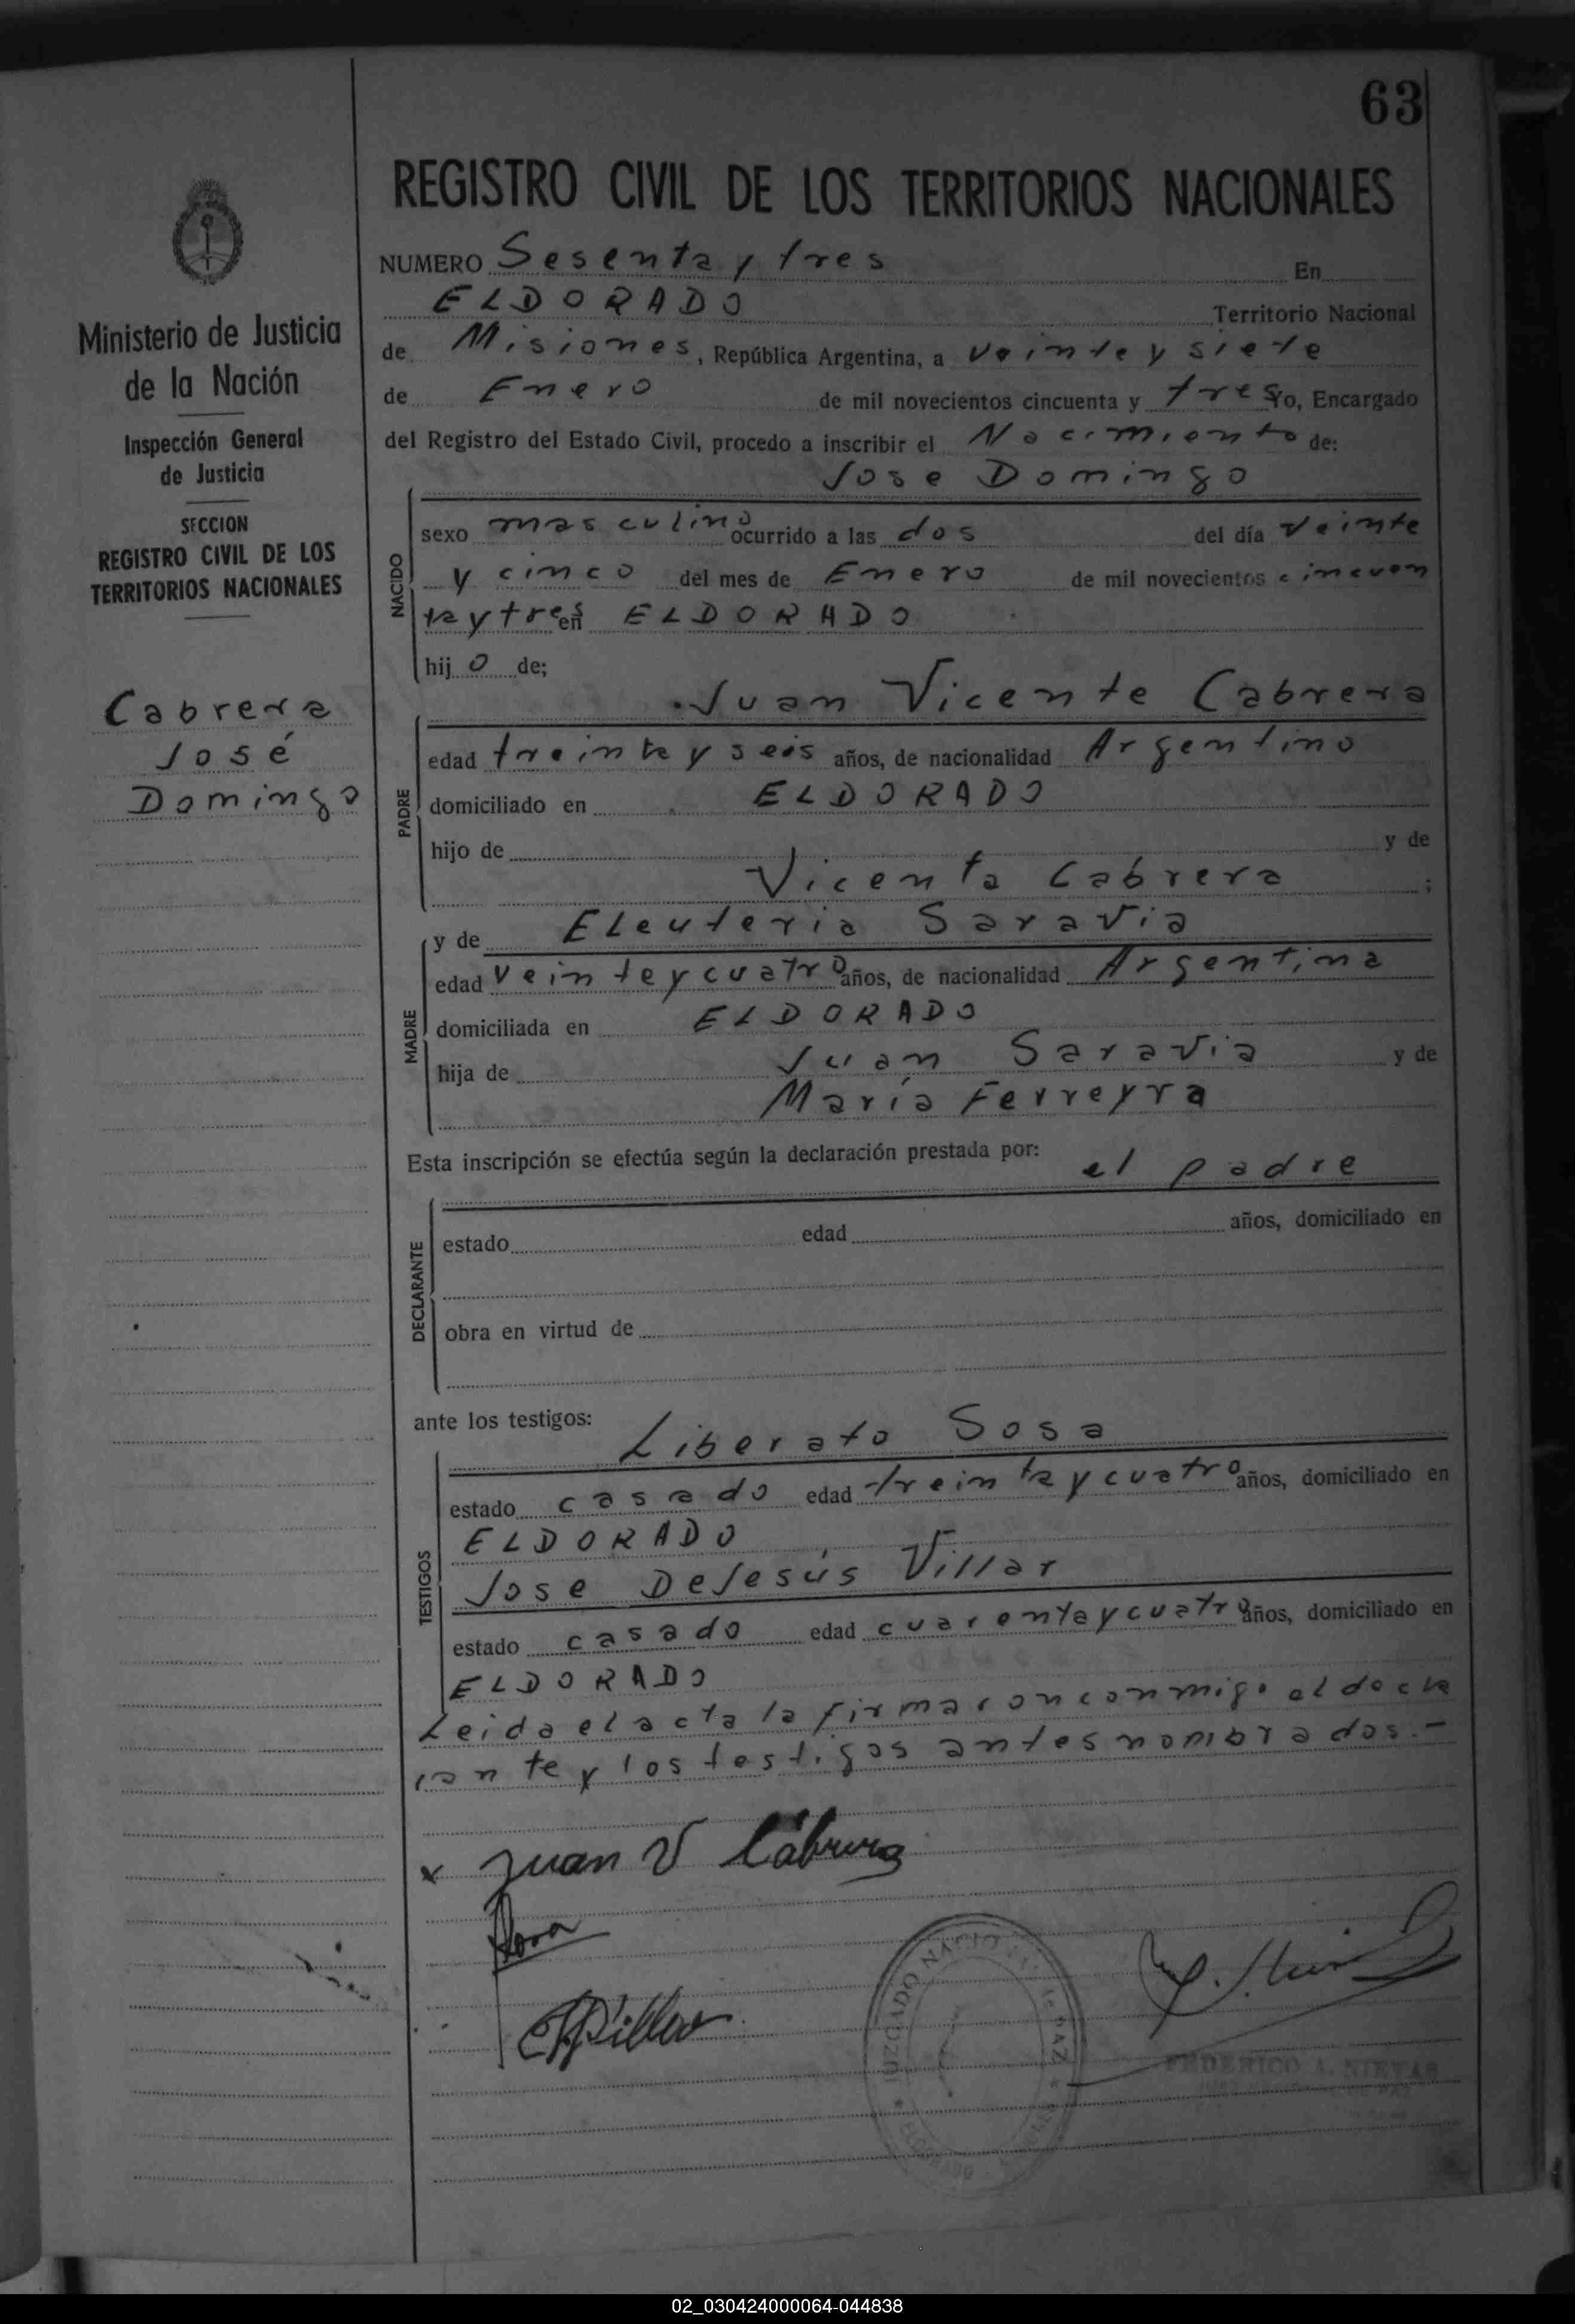 63
REGISTRO CIVIL DE LOS TERRITORIOS NACIONALES
Ministerio de Justicia
de la Nación
Inspección General
de Justicia
SECCION
REGISTRO CIVIL DE LOS
TERRITORIOS NACIONALES
Cabrera
José
Domingo
NUMERO Sesenta y tres En
ELDORADO Territorio Nacional
de Misiones, República Argentina, a veinte y siete
de Enero de mil novecientos cincuenta y tres Yo, Encargado
del Registro del Estado Civil, procedo a inscribir el Nacimiento de:
Jose Domingo
NACIDO
sexo masculino ocurrido a las dos del día veinte
y cinco del mes de Enero de mil novecientos cincuen
ta y tres en ELDORADO
hijo de;
Juan Vicente Cabrera
PADRE
edad treinta y seis años, de nacionalidad Argentino
domiciliado en ELDORADO
hijo de y de
Vicenta Cabrera ;
y de Eleuteria Saravia
MADRE
edad veinte y cuatro años, de nacionalidad Argentina
domiciliada en ELDORADO
hija de Juan Saravia y de
María Ferreyra
Esta inscripción se efectúa según la declaración prestada por: el padre
DECLARANTE
estado edad años, domiciliado en
obra en virtud de
ante los testigos: Liberato Sosa
TESTIGOS
estado casado edad treinta y cuatro años, domiciliado en
ELDORADO
Jose DeJesús Villar
estado casado edad cuarenta y cuatro años, domiciliado en
ELDORADO
Leida el acta la firmaron conmigo el decla
rante y los testigos antes nombrados.-
x Juan V Cabrera
Sosa
Villar
JUZGADO NACIONAL de PAZ
FEDERICO A. NIEVAS
02_030424000064-044838